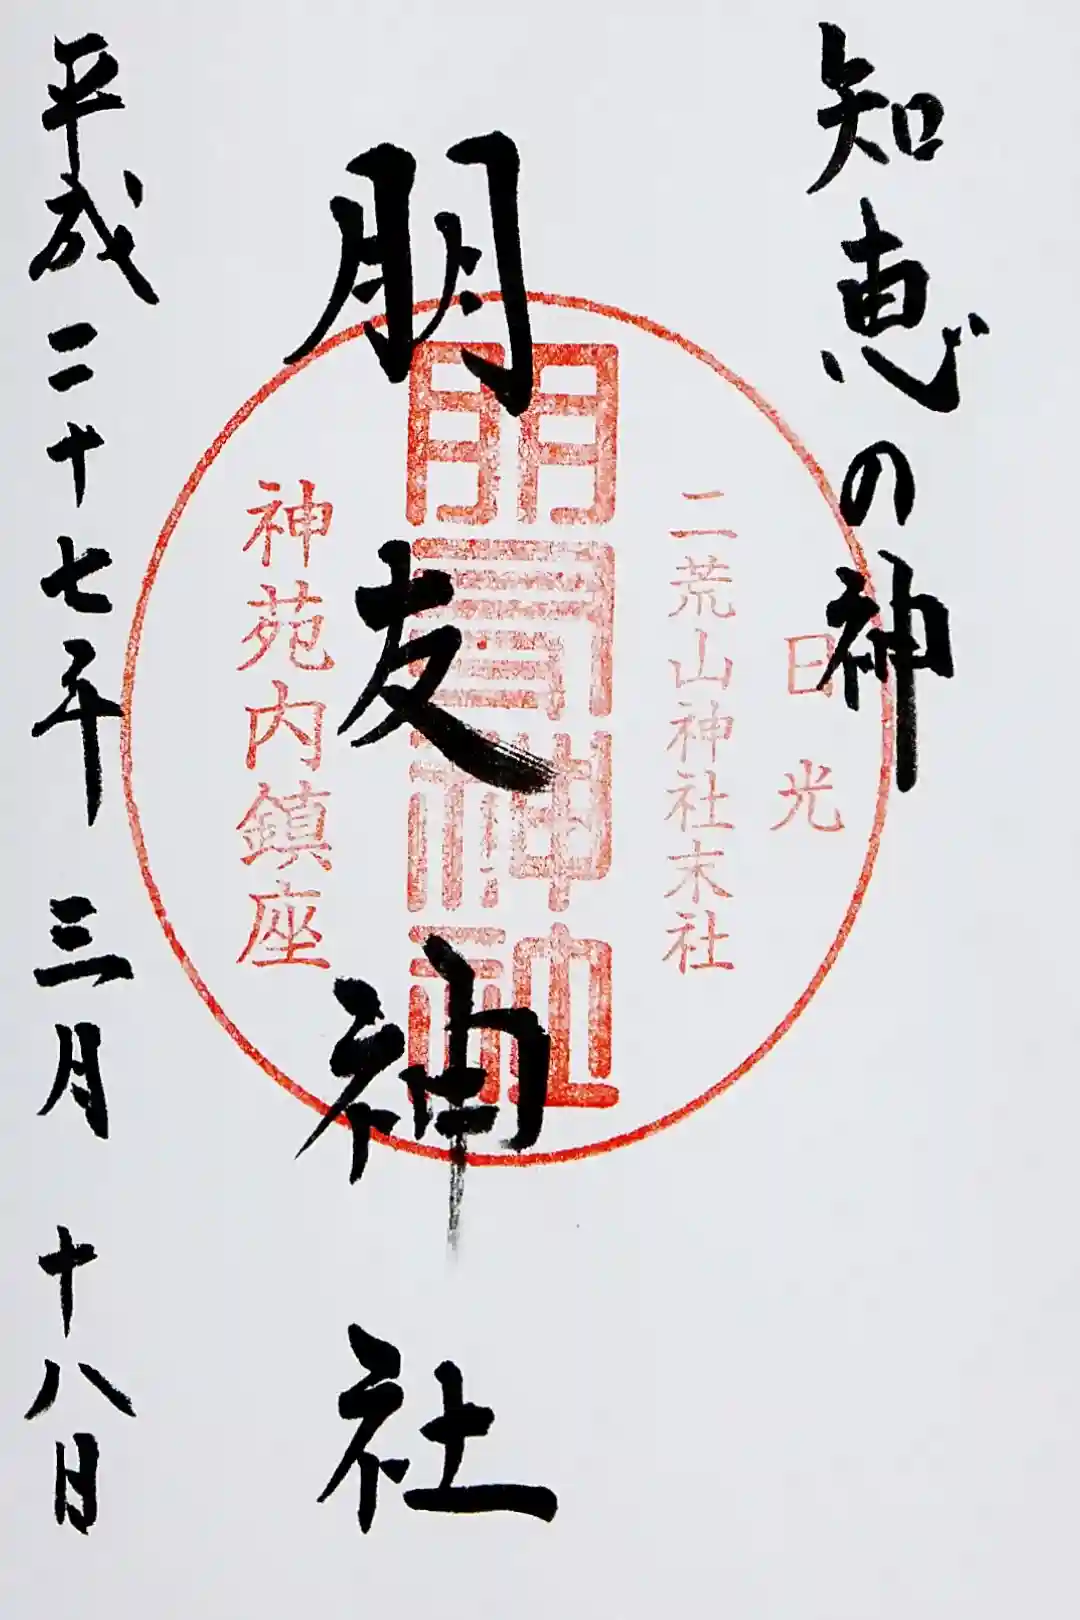 知恵の神
日光
二荒山神社末社
朋友神社
神苑内鎮座
平成二十七年 三月 十八日